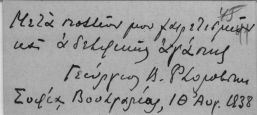 Μετὰ πολλῶν μου χαιρετισμῶν
καὶ ἀδελφικῆς ἀγάπης
Γεώργιος Β.
Σοφία, Βουλγαρίας, 10 Αυγ. 1938